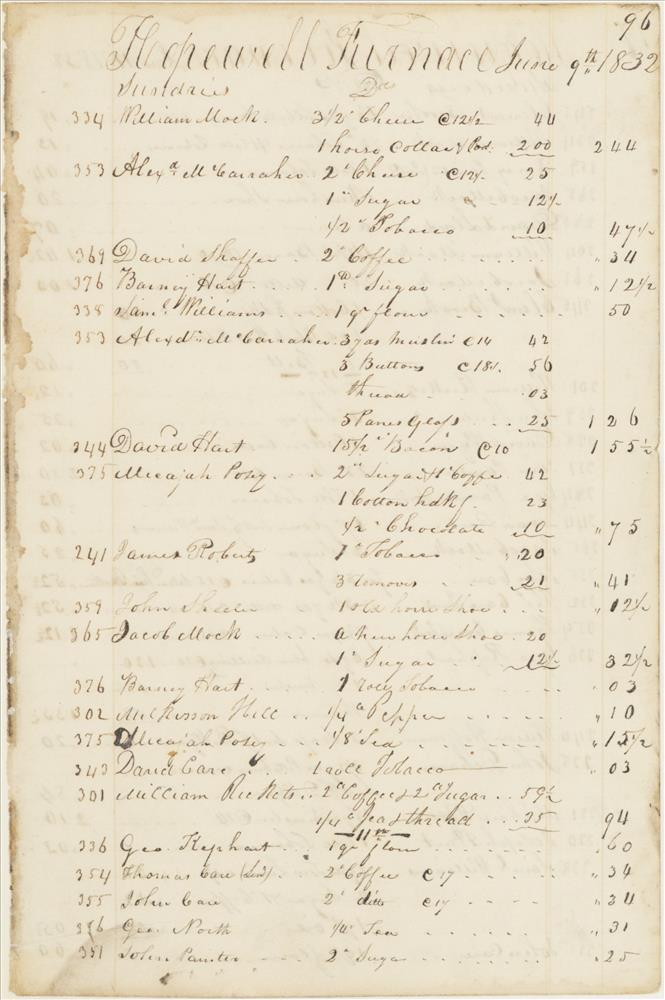 96
Hopewell Furnace June 9th 1832
Sundries Drs
334 William Mock. 3 1/2 " Cheese @ 12 1/2 44
1 horse Collar & Pad. 2 00 2 44
353 Alexd. McCarraher 2 " Cheese @ 12 1/2 25
1 " Sugar 12 1/2
1/2 " Tobacco 10 47 1/2
369 David Shaffer 2 " Coffee " 34
376 Barney Hart 1 lb Sugar " 12 1/2
338 Saml. Williams 1 qr flour 50
353 Alexdr. McCarraher 3 yds muslin @ 14 42
3 Buttons @ 18 3/4 56
thread 03
5 Panes Glass 25 1 26
344 David Hart 15 1/2 " Bacon @ 10 1 55 1/2
375 Micajah Posey 2 " Sugar & 1 " Coffe 42
1 Cotton hdkf. 23
1/2 " Chocolate 10 " 75
241 James Roberts 1 " Tobacco 20
3 21 " 41
359 John Sheeler 1 old horse Shoe " 12 1/2
365 Jacob Mock a new horse Shoe 20
1 " Sugar 12 1/2 32 1/2
376 Barney Hart 1 roll Tobacco " 03
302 Hill 1/4 " Pepper " 10
375 Micajah Posey 1/8 " Tea " 15 1/2
343 David Care 1 roll Tobacco " 03
301 William Rickets 2 " Coffee & 2 " Sugar 59 1/2
1/4 " Tea & thread 35 94
11th
336 Geo. Kephart 1 qr flour " 60
354 Thomas Care (Senr) 2 " Coffee @ 17 " 34
355 John Care 2 " ditto @ 17 " 34
356 Geo. North 1/4 " Tea " 31
351 John Painter 2 " Sugar " 25